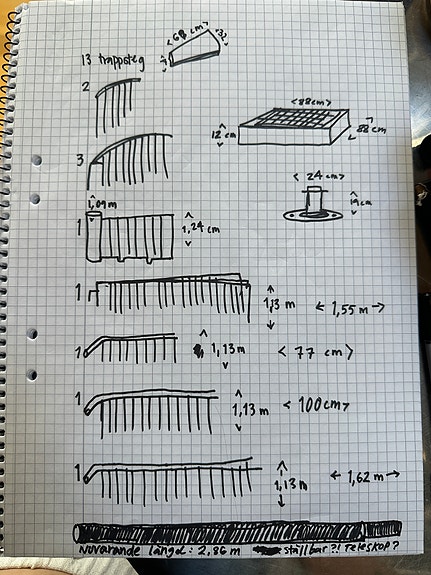 < 68 cm >
32
13 trappsteg
2
< 88cm >
12 cm
88 cm
3
< 24 cm >
19 cm
1,09 m
1
1,24 cm
1
1,13 m
← 1,55 m →
1
1,13 m
< 77 cm >
1
1,13 m
< 100cm >
1
1,13 m
← 1,62 m →
Nuvarande längd: 2,86 m ställbar?! Teleskop?